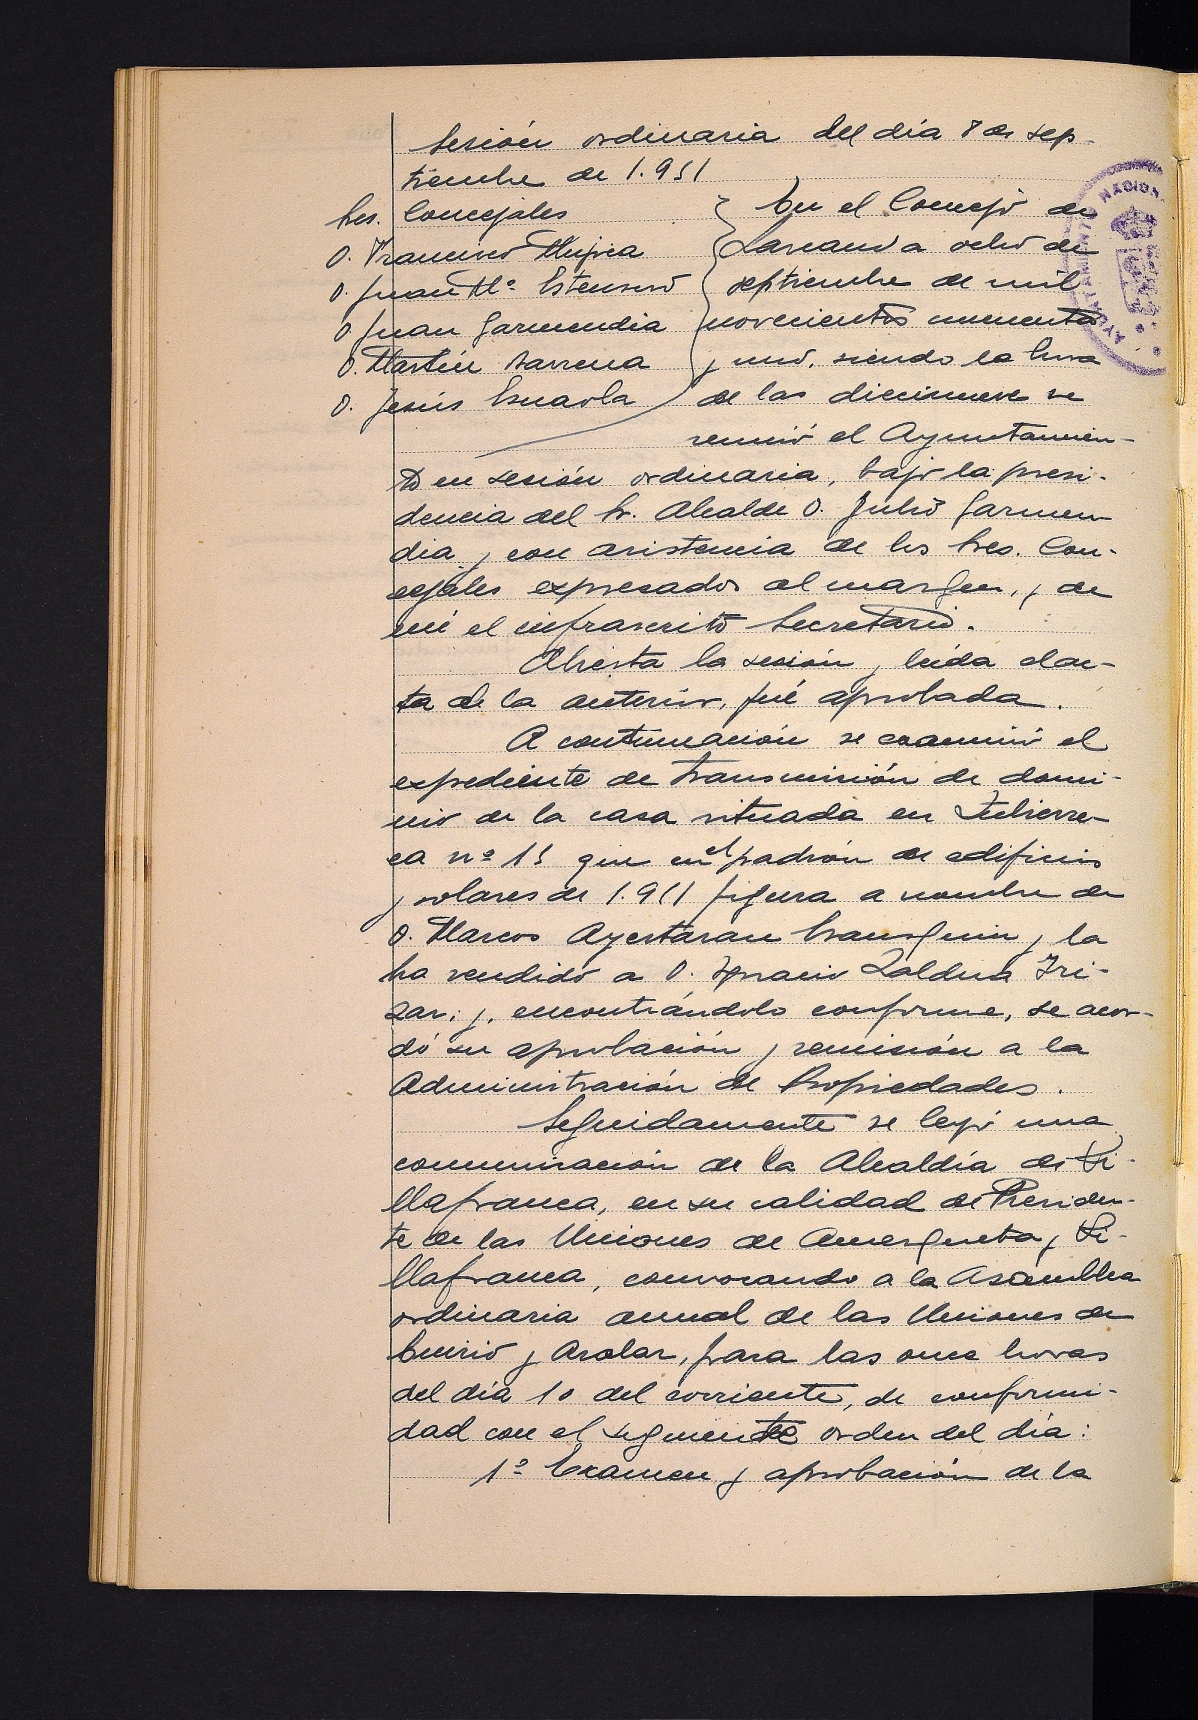 Sesión ordinaria del día 8 de sep-
tiembre de 1.951
Sres. Concejales
D. Francisco Mujica
D. Juan Mª Estensoro
D. Juan Garmendia
D. Martín Barrena
D. Jesús Esnaola
En el Concejo de
Lazcano a ocho de
septiembre de mil
novecientos cincuenta
y uno, siendo la hora
de las diecinueve se
reunió el Ayuntamien-
to en sesión ordinaria, bajo la presi-
dencia del Sr. Alcalde D. Julio Garmen
dia y con asistencia de los Sres. Con-
cejales expresados al margen, y de
mí el infrascrito Secretario.
Abierta la sesión y leída el ac-
ta de la anterior, fué aprobada.
A continuación se examinó el
expediente de transmisión de domi-
nio de la casa situada en Zubierre-
ca nº 15 que en el padrón de edificios
y solares de 1.951 figura a nombre de
D. Marcos Ayestaran y la
ha vendido a D. Ignacio Zaldua Iri-
zar; y, encontrándolo conforme, se acor-
dó su aprobación y remisión a la
Administración de Propiedades.
Seguidamente se leyó una
comunicación de la Alcaldía de Vi-
llafranca, en su calidad de Presiden-
te de las Uniones de Amezqueta y Vi-
llafranca, convocando a la Asamblea
ordinaria anual de las Uniones de
Enirio y Aralar, para las once horas
del día 10 del corriente, de conformi-
dad con el siguiente orden del día:
1º Examen y aprobación de la
AYUNTAMIENTO NACION